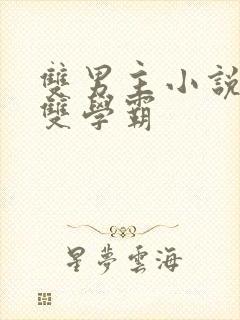 雙男主小說
雙學霸
星夢雲海